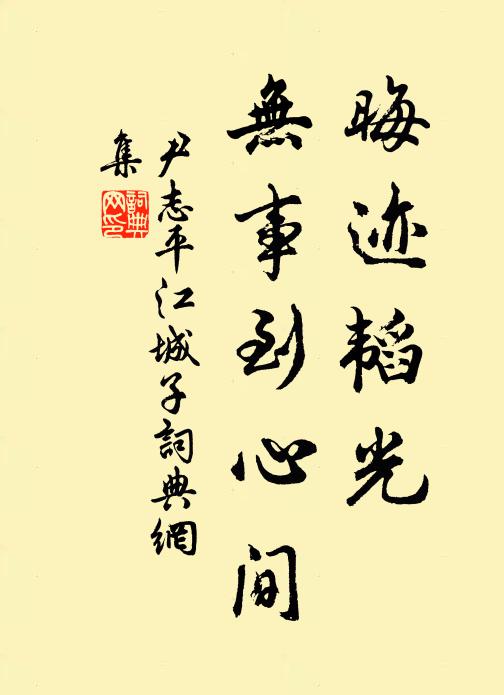 晦迹韬光
無事到心间
尹志平江城子詞典網
集
詞典網印